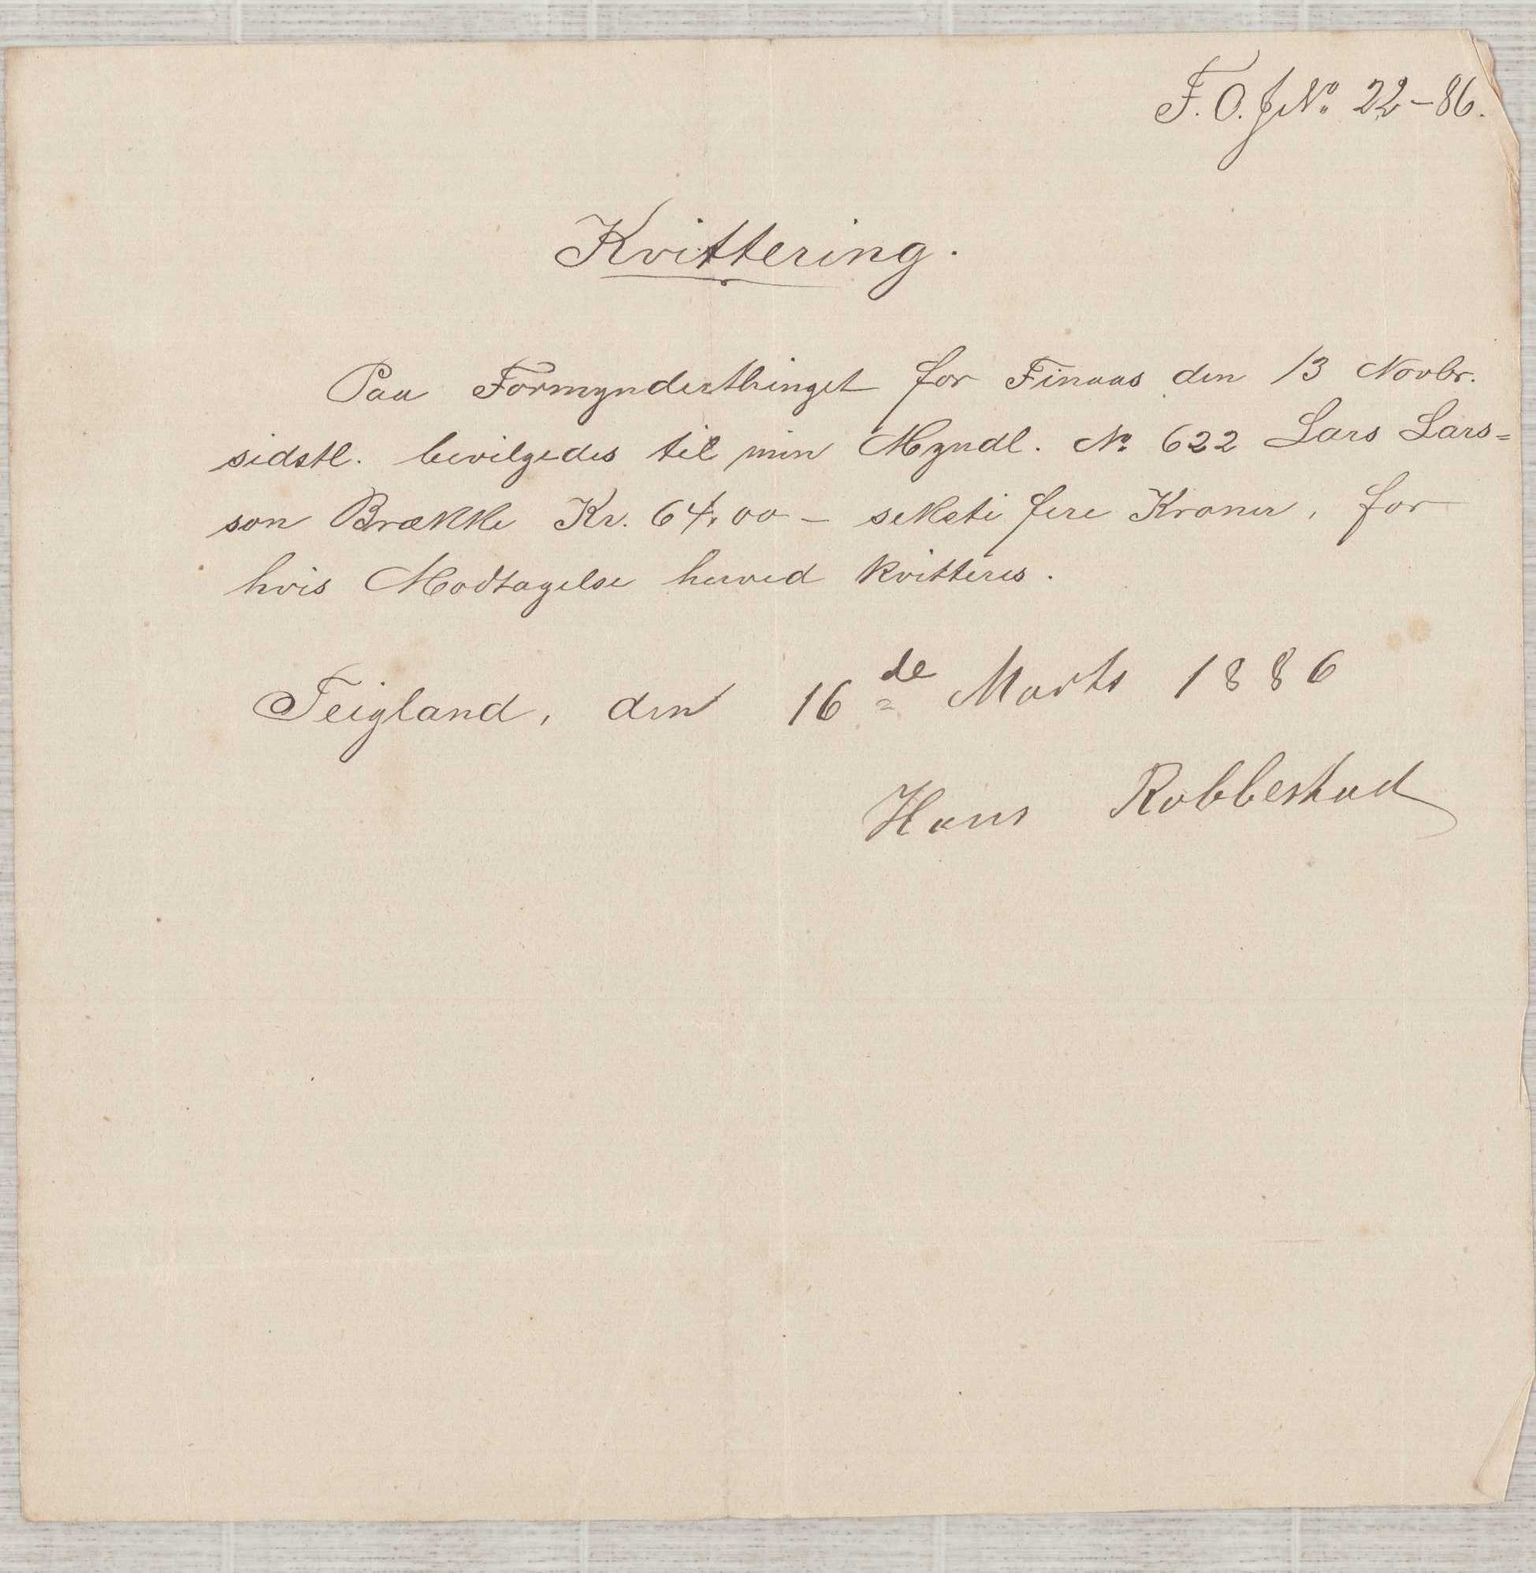 F. O. J№ 22-86.
Kvittering.
Paa Formynderthinget for Finaas den 13 Novbr.
sidstl. bevilgedes til min Myndl. № 622 Lars Lars=
son Brække Kr. 64,00 - seksti fire Kroner, for
hvis Modtagelse herved kvitteres.
Teigland, den 16de Marts 1886
Hans Robbestad